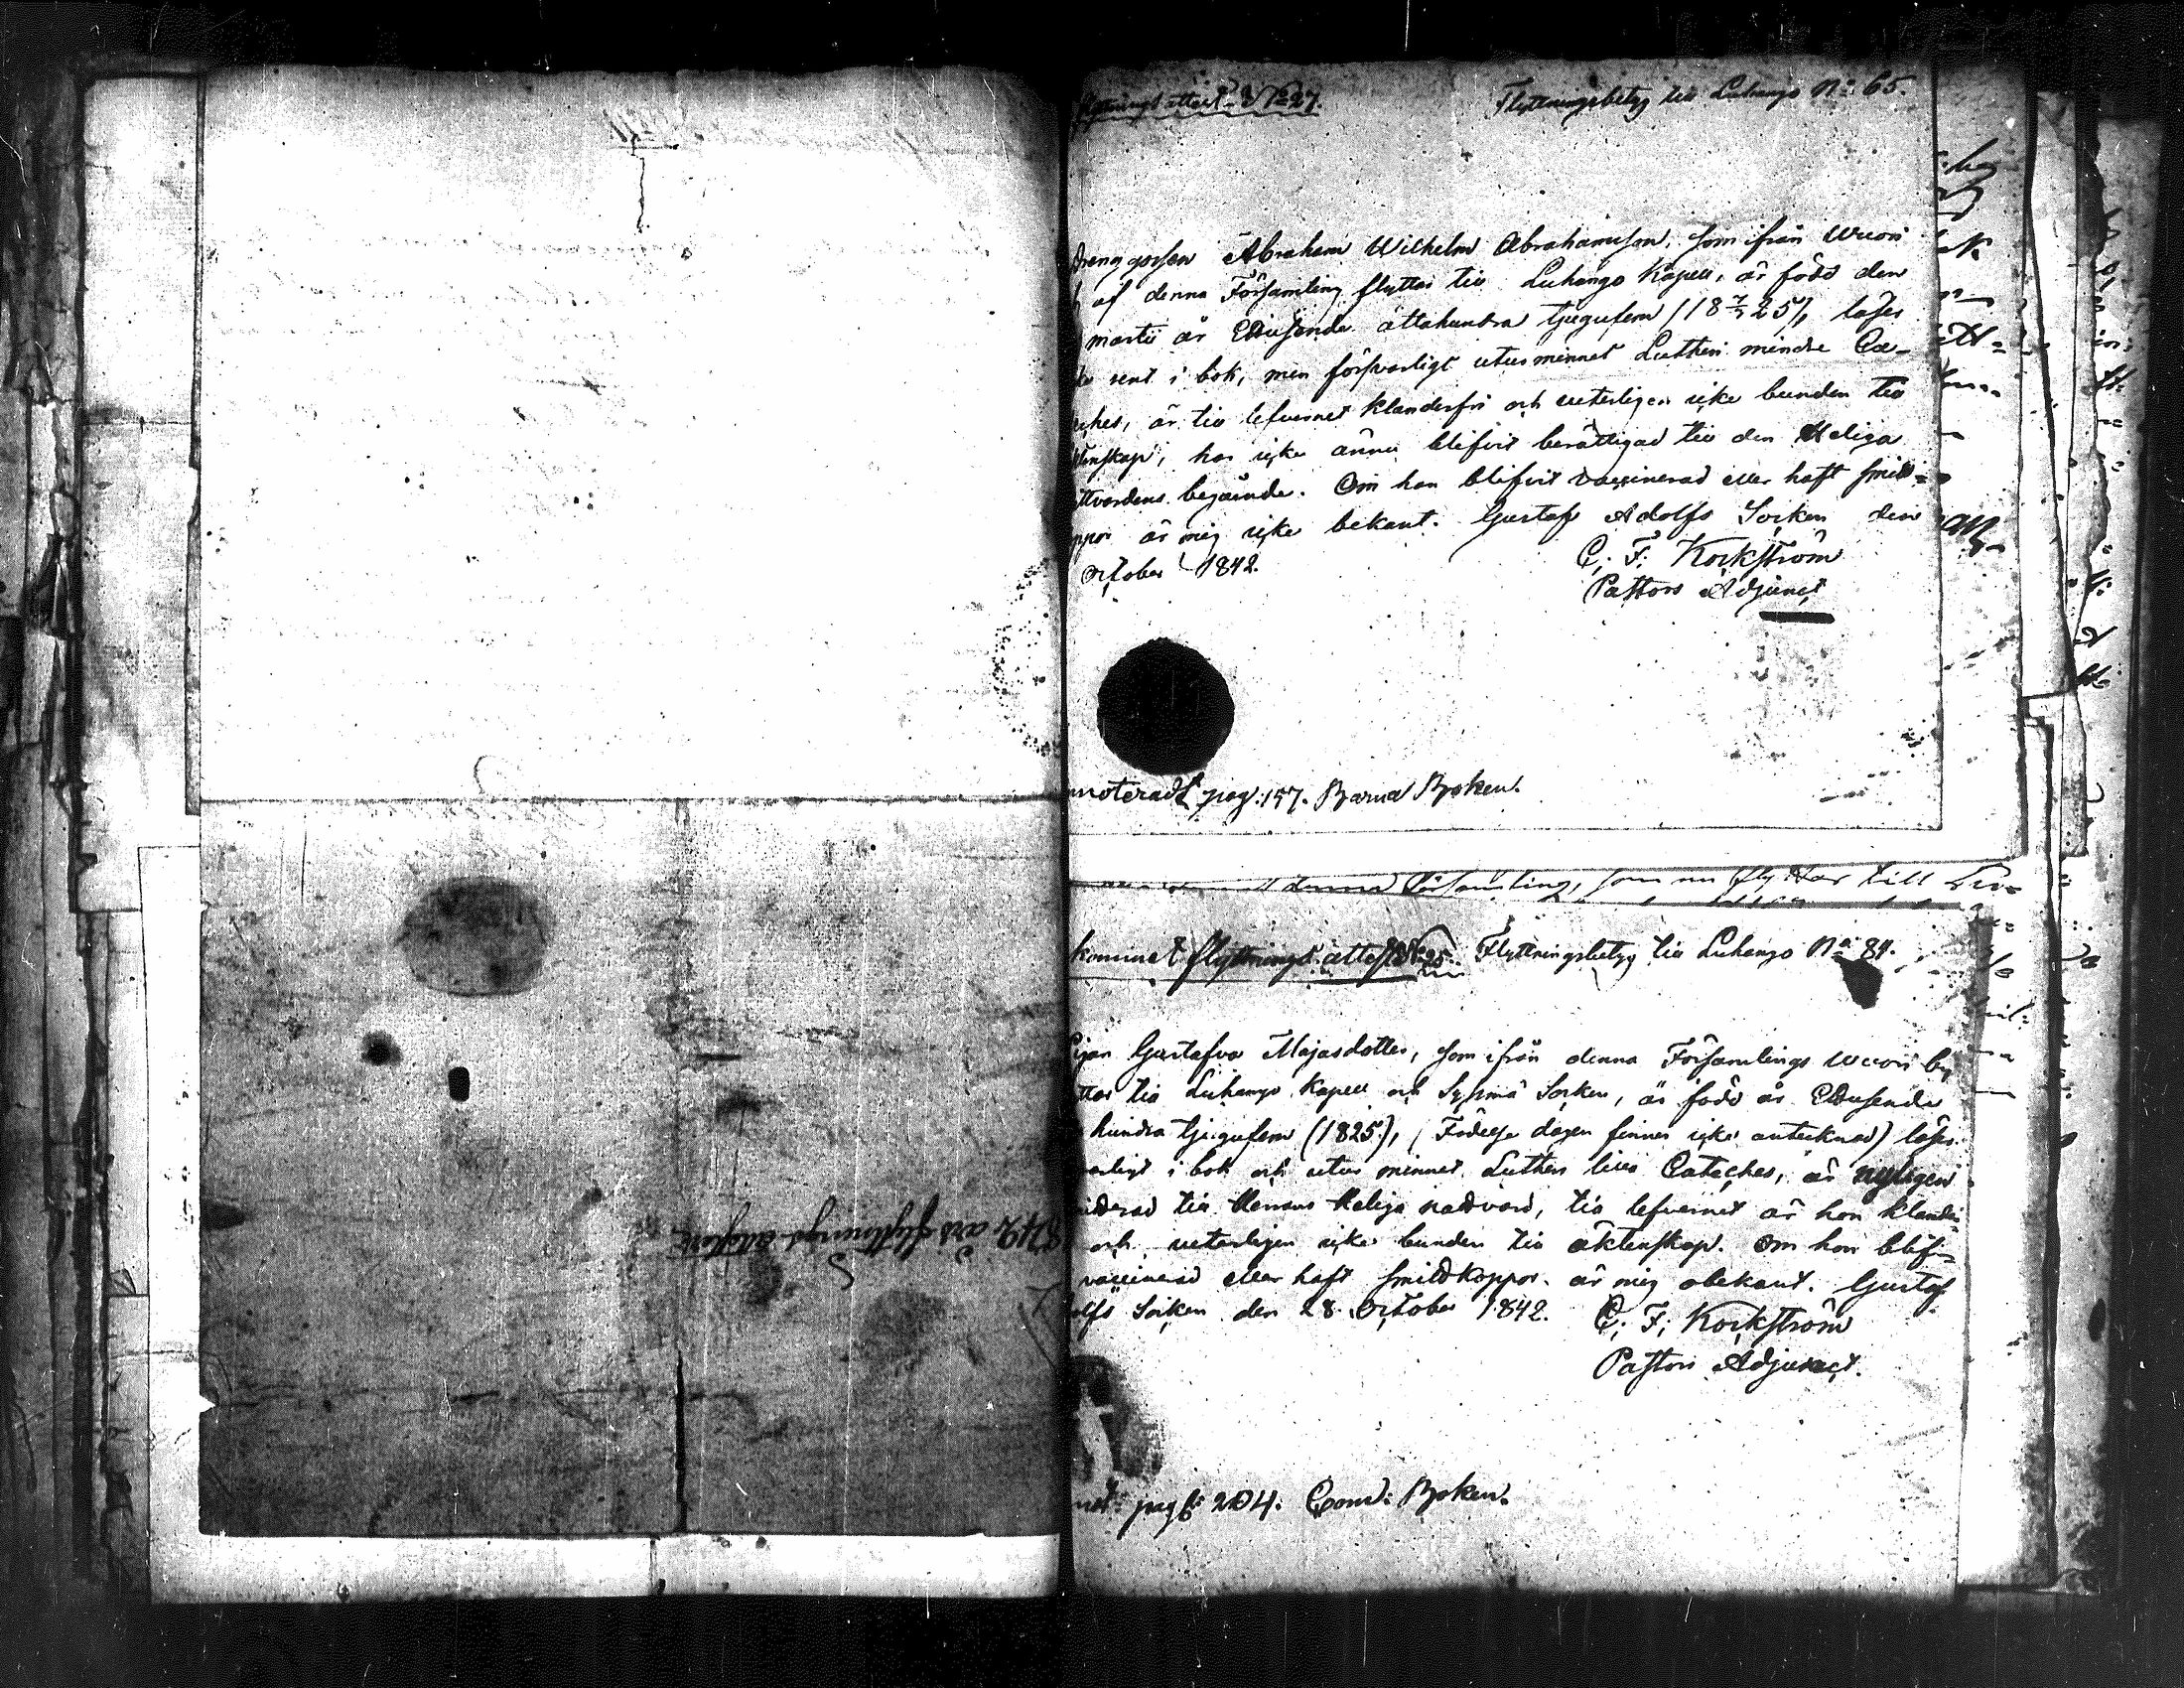 1842 års flyttnings attester
flyttningsattest No 27.
Flyttningsbetyg till Luhango No 65.
Drenggossen Abraham Wilhelm Abrahamsson, som ifrån Wuori
af denna Församling flyttar till Luhango Kapell, är född den
martii år Ettusende åttahundra tjugufem (18 7/3 25), läser
sent i bok, men försvarligt utur minnet Lutheri mindre Ca-
ches, är till lefvernet klanderfri och veterligen icke bunden till
tenskap, har icke ännu blifvit berättigad till den Heliga
ttvardens begående. Om han blifvit vaccinerad eller haft smitt-
ppor är mig icke bekant. Gustaf Adolfs Socken den
October 1842.
C. F. Kockström
Pastors Adjunct
nnoterad pag: 157. Barna Boken.
denna Församling, som nu flyttar till
kommet flyttnings attest No 25.
Flyttningsbetyg till Luhango No 84.
Pigan Gustafva Majasdotter, som ifrån denna Församlings Wuori by
ttar till Luhango Kapell och Sysmä Socken, är född år Ettusende
hundra tjugufem (1825), (Födelse dagen finnes icke antecknad) läser
varligt i bok och utur minnet Lutheri lilla Cateches, är nyligen
itterad till Herrans Heliga nattvard, till lefvernet är hon klander
och veterligen icke bunden till äktenskap. Om hon blif-
vaccinerad eller haft smittkoppor är mig obekant. Gustaf
olfs Socken den 28 October 1842.
C. F. Kockström
Pastors Adjunct.
not: pag: 204. Comm: Boken.